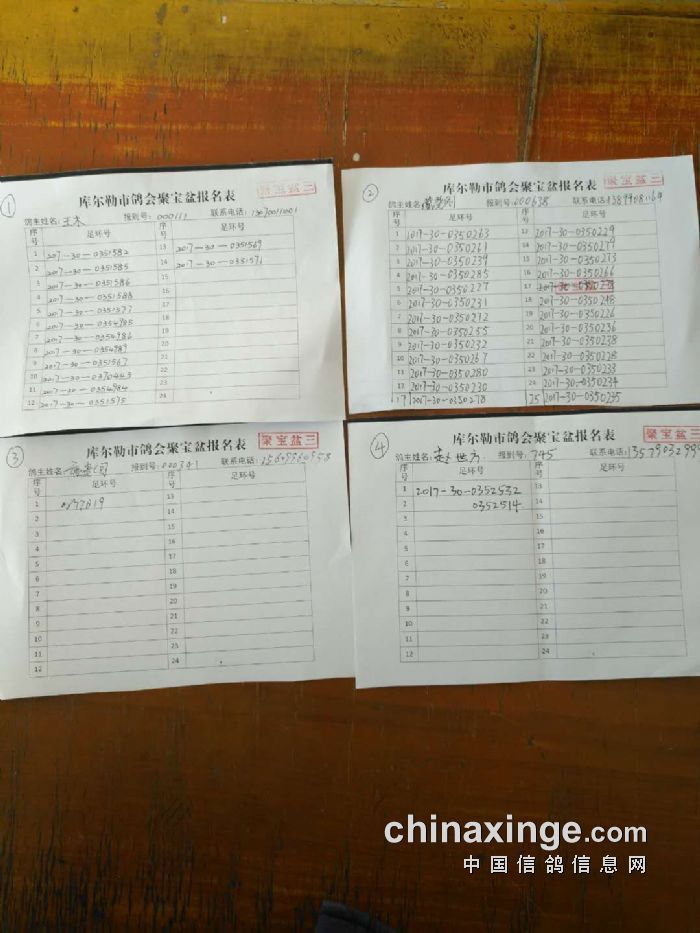 ①
库尔勒市鸽会聚宝盆报名表
聚宝盆三
鸽主姓名: 王木 报到号: 000117 联系电话:
序号 足环号 序号 足环号
1 2017-30-0351582 13 2017-30-0351569
2 2017-30-0351585 14 2017-30-0351571
3 2017-30-0351586 15
4 2017-30-0351588 16
5 2017-30-0351577 17
6 2017-30-0354985 18
7 2017-30-0354986 19
8 2017-30-0354989 20
9 2017-30-0351567 21
10 2017-30-0370443 22
11 2017-30-0354984 23
12 2017-30-0351575 24
②
库尔勒市鸽会聚宝盆报名表
聚宝盆三
鸽主姓名: 报到号: 000638 联系电话: 13899081164
序号 足环号 序号 足环号
1 2017-30-0350263 13 2017-30-0350229
2 2017-30-0350261 14 2017-30-0350279
3 2017-30-0350239 15 2017-30-0350273
4 2017-30-0350285 16 2017-30-0350266
5 2017-30-0350227 17
6 2017-30-0350231 18 2017-30-0350248
7 2017-30-0350212 19 2017-30-0350226
8 2017-30-0350255 20 2017-30-0350236
9 2017-30-0350232 21 2017-30-0350238
10 2017-30-0350267 22 2017-30-0350228
11 2017-30-0350280 23 2017-30-0350233
12 2017-30-0350230 24 2017-30-0350234
17 2017-30-0350278 25 2017-30-0350235
③
库尔勒市鸽会聚宝盆报名表
聚宝盆三
鸽主姓名: 报到号: 联系电话:
序号 足环号 序号 足环号
1 13
2 14
3 15
4 16
5 17
6 18
7 19
8 20
9 21
10 22
11 23
12 24
④
库尔勒市鸽会聚宝盆报名表
聚宝盆三
鸽主姓名: 赵世方 报到号: 745 联系电话:
序号 足环号 序号 足环号
1 2017-30-0352532 13
2 0352514 14
3 15
4 16
5 17
6 18
7 19
8 20
9 21
10 22
11 23
12 24
chinaxinge.com
中国信鸽信息网